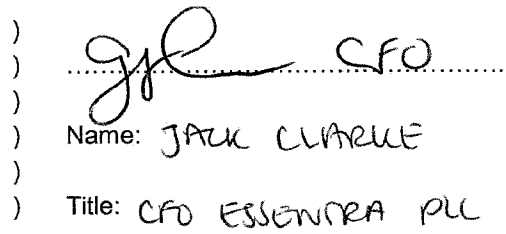 ) CFO
)
)
) Name: JACK CLARKE
)
) Title: CFO ESSENTRA PLC